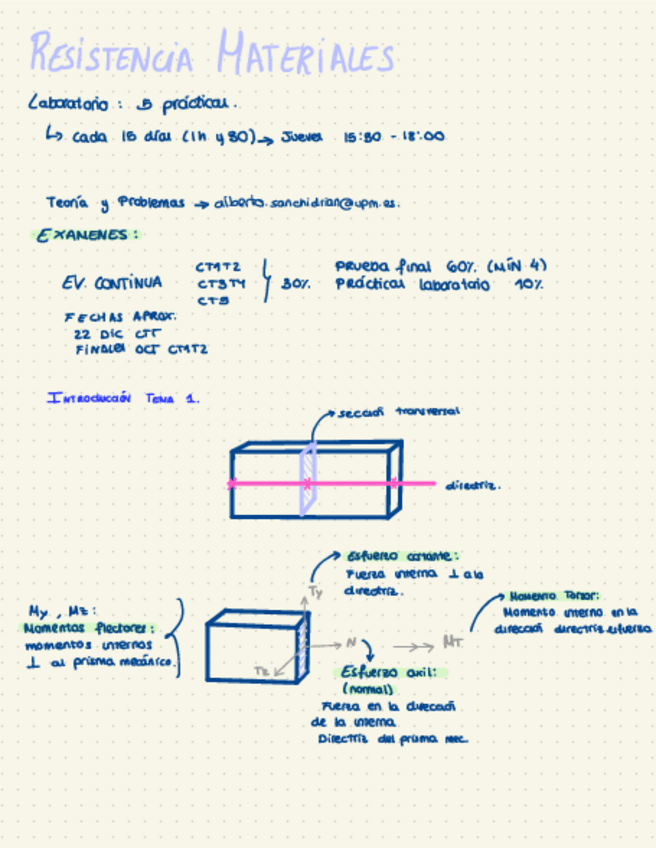 RESISTENCIA MATERIALES
Laboratorio : 5 prácticas.
↳ cada 15 días (1h y 30) → Jueves 15:30 - 18:00
Teoría y Problemas → alberto.sanchidrian@upm.es.
EXAMENES :
EV. CONTINUA
CT1T2
CT3T4
CT5
30%
PRUEBA final 60% (MÍN 4)
Prácticas laboratorio 10%
FECHAS APROX.
22 DIC CTT
FINALES OCT CT1T2
INTRODUCCIÓN TEMA 1.
sección transversal
directriz.
Esfuerzo cortante:
Fuerza interna ⊥ a la
directriz.
Ty
My , Mz :
Momentos flectores :
momentos internos
⊥ al prisma mecánico.
Tz
N
MT
Momento Torsor:
Momento interno en la
dirección directriz esfuerzo
Esfuerzo axil:
(normal)
Fuerza en la dirección
de la interna
Directriz del prisma mec.